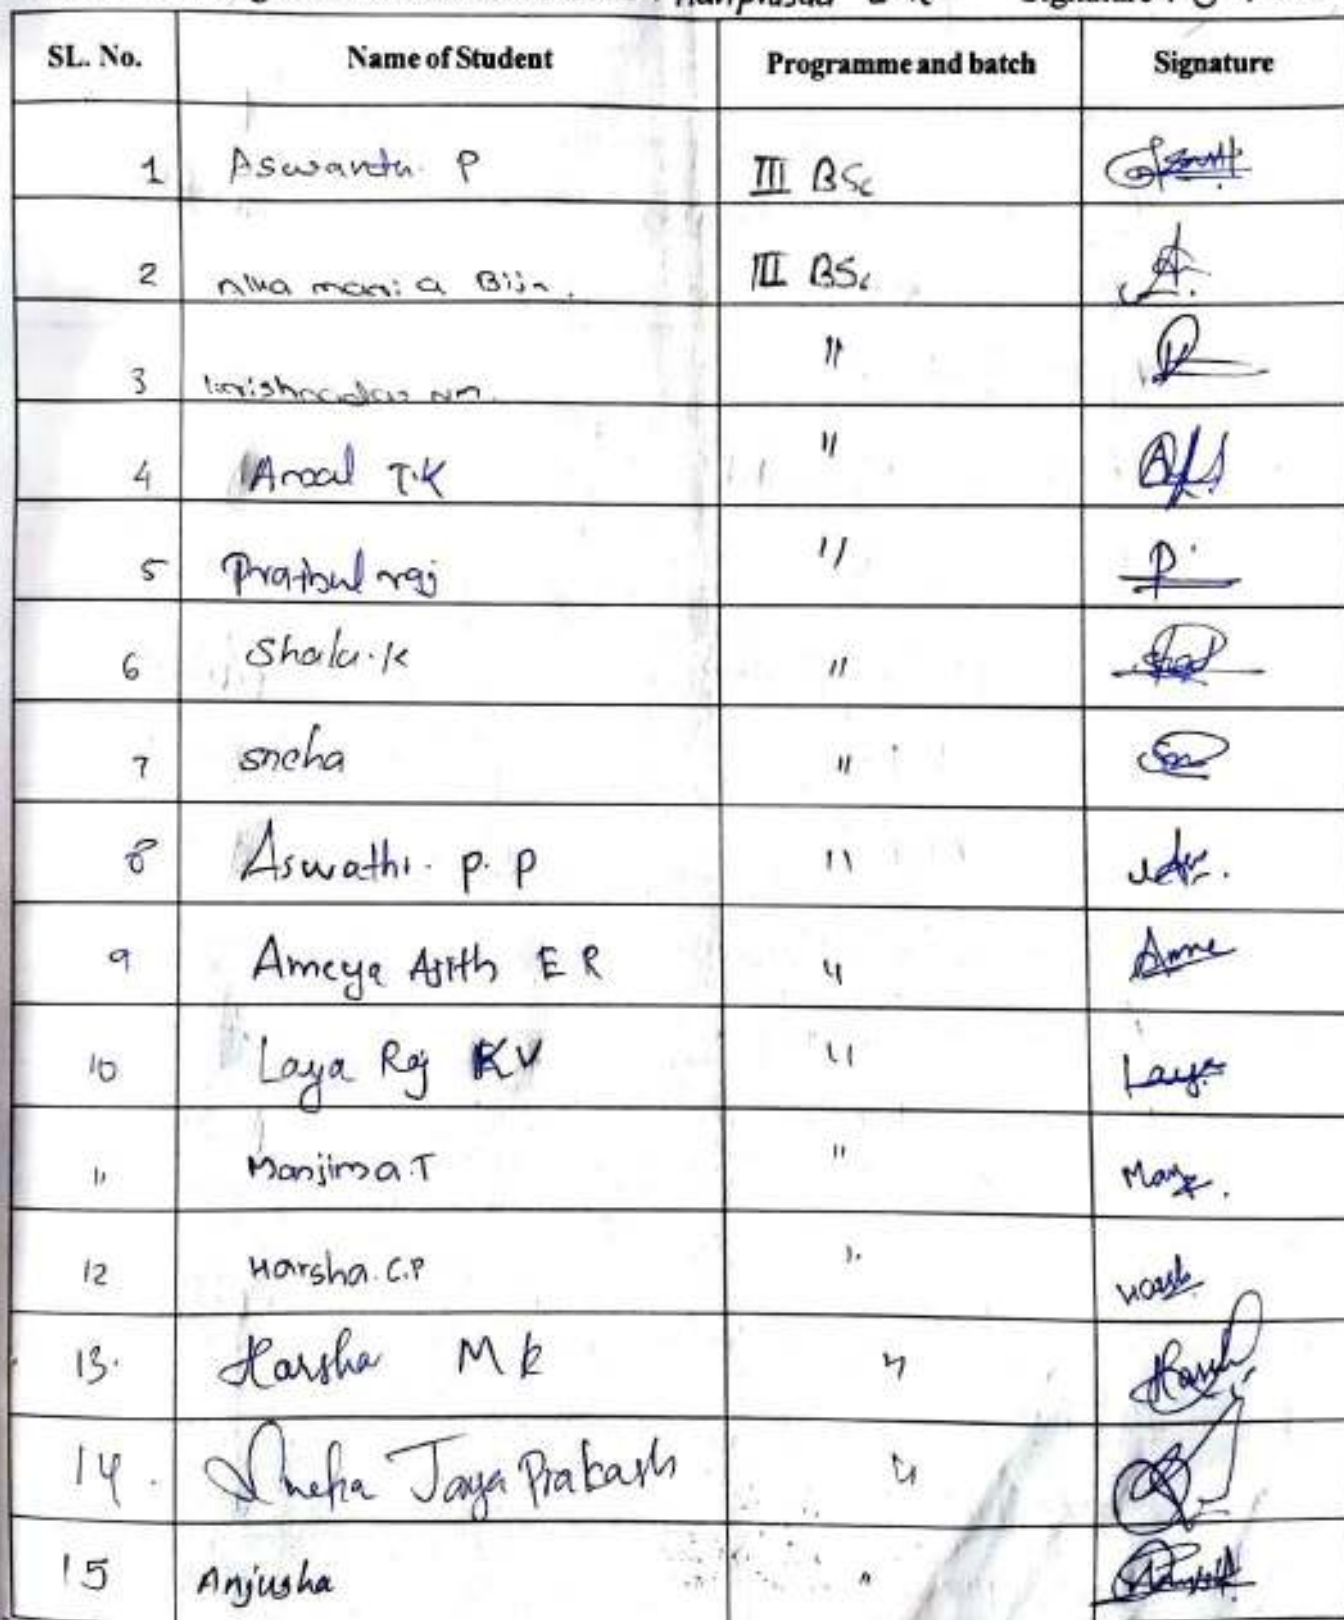 Hariprasad
SL. No. Name of Student Programme and batch Signature
1 Aswanth. P III BSc
2 maria Biju. III BSc
3 krishnadas NM. "
4 Amal T.K "
5 Prabul raj "
6 Shala.K "
7 sneha "
8 Aswathi. P. P "
9 Ameya Ajith E R " Ame
10 Laya Raj KV " Laya
11 Manjima.T " Man
12 Harsha. C.P " Harsh
13. Harsha M K " Harsh
14. Sneha Jaya Prakash "
15 Anjusha "